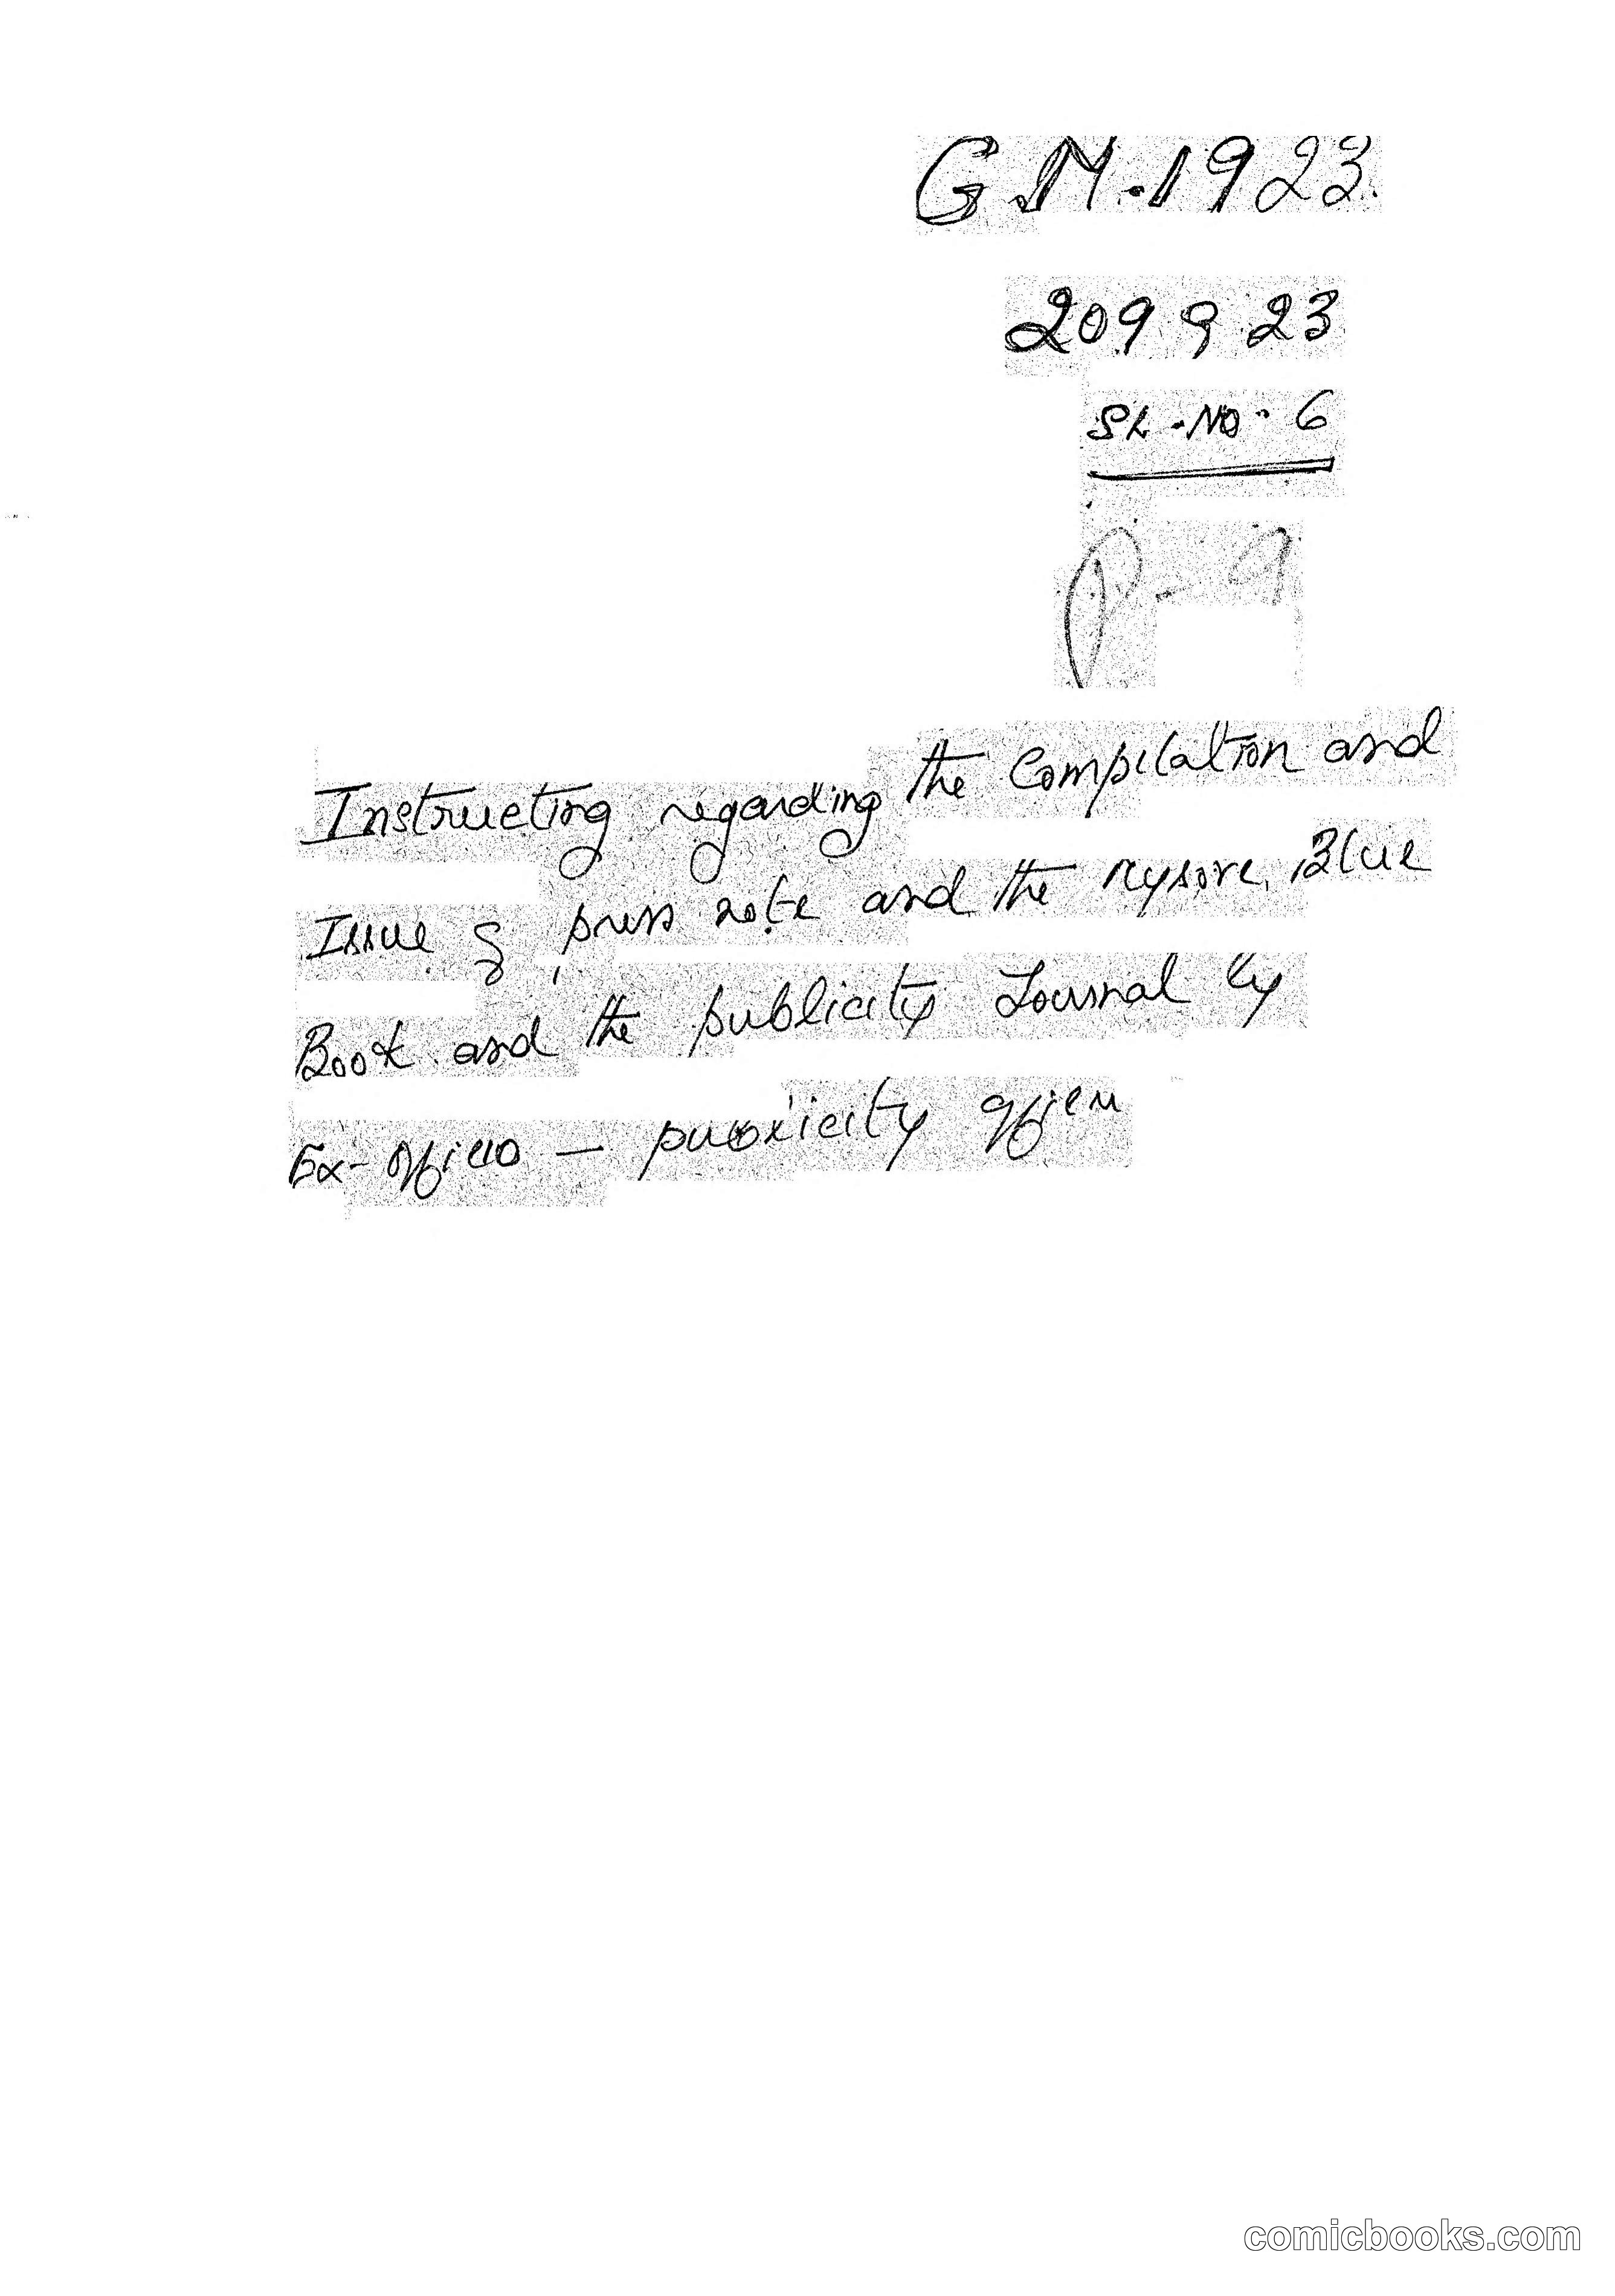 G.M.1923.
209 9 23
SL.NO. 6
P- 9
Instructing regarding the Compilation and
Issue of press note and the Mysore Blue
Book and the publicity Journal by
Ex-officio — publicity officer
comicbooks.com